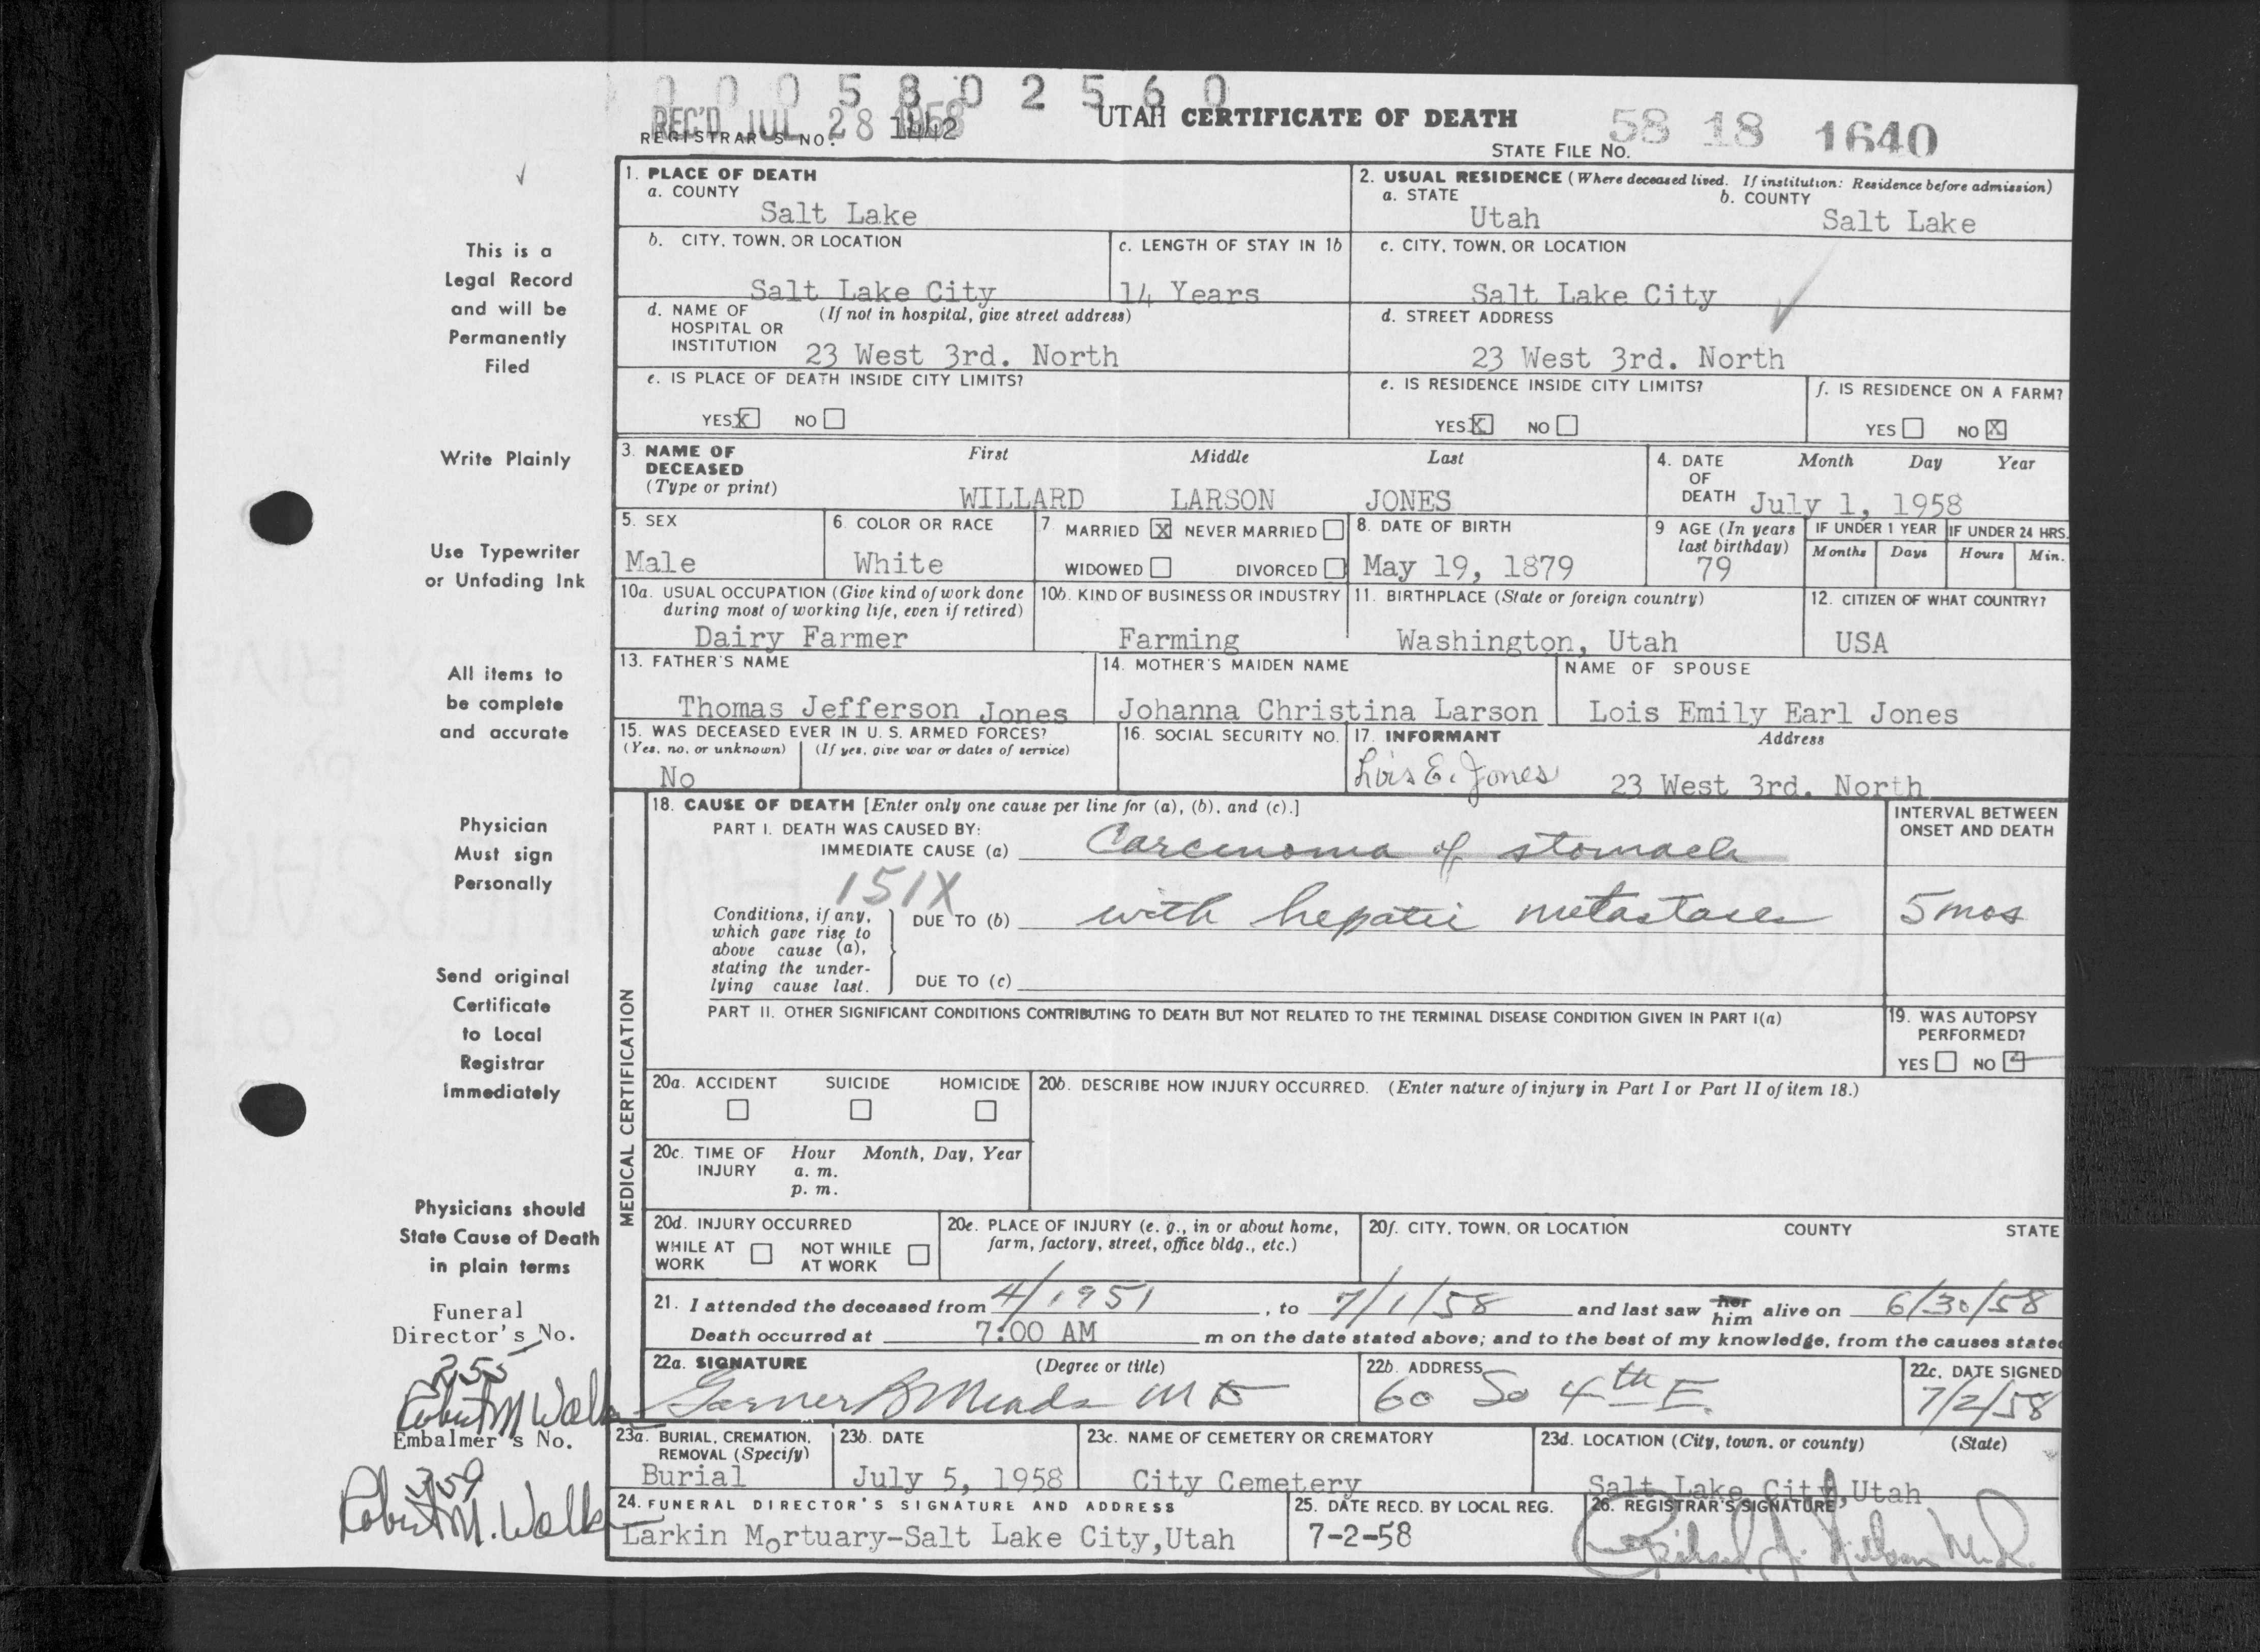 0005802560
REC'D JUL 28 1958
REGISTRAR'S NO. 1442
UTAH CERTIFICATE OF DEATH
STATE FILE NO. 58 18 1640
This is a
Legal Record
and will be
Permanently
Filed
Write Plainly
Use Typewriter
or Unfading Ink
All items to
be complete
and accurate
Physician
Must sign
Personally
Send original
Certificate
to Local
Registrar
Immediately
Physicians should
State Cause of Death
in plain terms
Funeral
Director's No.
255
Robert M Walk
Embalmer's No.
359
Robert M. Walk
1. PLACE OF DEATH
a. COUNTY
Salt Lake
2. USUAL RESIDENCE (Where deceased lived. If institution: Residence before admission)
a. STATE b. COUNTY
Utah Salt Lake
b. CITY, TOWN, OR LOCATION
Salt Lake City
c. LENGTH OF STAY IN 1b
14 Years
c. CITY, TOWN, OR LOCATION
Salt Lake City
d. NAME OF (If not in hospital, give street address)
HOSPITAL OR
INSTITUTION 23 West 3rd. North
d. STREET ADDRESS
23 West 3rd. North
e. IS PLACE OF DEATH INSIDE CITY LIMITS?
YES X NO
e. IS RESIDENCE INSIDE CITY LIMITS?
YES X NO
f. IS RESIDENCE ON A FARM?
YES NO X
3. NAME OF First Middle Last
DECEASED
(Type or print)
WILLARD LARSON JONES
4. DATE Month Day Year
OF
DEATH July 1, 1958
5. SEX
Male
6. COLOR OR RACE
White
7. MARRIED X NEVER MARRIED
WIDOWED DIVORCED
8. DATE OF BIRTH
May 19, 1879
9 AGE (In years
last birthday)
79
IF UNDER 1 YEAR IF UNDER 24 HRS.
Months Days Hours Min.
10a. USUAL OCCUPATION (Give kind of work done
during most of working life, even if retired)
Dairy Farmer
10b. KIND OF BUSINESS OR INDUSTRY
Farming
11. BIRTHPLACE (State or foreign country)
Washington, Utah
12. CITIZEN OF WHAT COUNTRY?
USA
13. FATHER'S NAME
Thomas Jefferson Jones
14. MOTHER'S MAIDEN NAME
Johanna Christina Larson
NAME OF SPOUSE
Lois Emily Earl Jones
15. WAS DECEASED EVER IN U. S. ARMED FORCES?
(Yes, no, or unknown) (If yes, give war or dates of service)
No
16. SOCIAL SECURITY NO.
17. INFORMANT Address
Lois E. Jones 23 West 3rd. North
MEDICAL CERTIFICATION
18. CAUSE OF DEATH [Enter only one cause per line for (a), (b), and (c).]
PART I. DEATH WAS CAUSED BY:
IMMEDIATE CAUSE (a) Carcinoma of stomach
151X
Conditions, if any,
which gave rise to
above cause (a),
stating the under-
lying cause last.
DUE TO (b) with hepatic metastases
DUE TO (c)
INTERVAL BETWEEN
ONSET AND DEATH
5 mos
PART II. OTHER SIGNIFICANT CONDITIONS CONTRIBUTING TO DEATH BUT NOT RELATED TO THE TERMINAL DISEASE CONDITION GIVEN IN PART I(a)
19. WAS AUTOPSY
PERFORMED?
YES NO
20a. ACCIDENT SUICIDE HOMICIDE
20b. DESCRIBE HOW INJURY OCCURRED. (Enter nature of injury in Part I or Part II of item 18.)
20c. TIME OF Hour Month, Day, Year
INJURY a. m.
p. m.
20d. INJURY OCCURRED
WHILE AT NOT WHILE
WORK AT WORK
20e. PLACE OF INJURY (e. g., in or about home,
farm, factory, street, office bldg., etc.)
20f. CITY, TOWN, OR LOCATION COUNTY STATE
21. I attended the deceased from 4/1951, to 7/1/58 and last saw her him alive on 6/30/58
Death occurred at 7:00 AM m on the date stated above; and to the best of my knowledge, from the causes stated
22a. SIGNATURE (Degree or title)
Garner B Meads M D
22b. ADDRESS
60 So 4th E.
22c. DATE SIGNED
7/2/58
23a. BURIAL, CREMATION,
REMOVAL (Specify)
Burial
23b. DATE
July 5, 1958
23c. NAME OF CEMETERY OR CREMATORY
City Cemetery
23d. LOCATION (City, town, or county) (State)
Salt Lake City, Utah
24. FUNERAL DIRECTOR'S SIGNATURE AND ADDRESS
Larkin Mortuary-Salt Lake City, Utah
25. DATE RECD. BY LOCAL REG.
7-2-58
26. REGISTRAR'S SIGNATURE